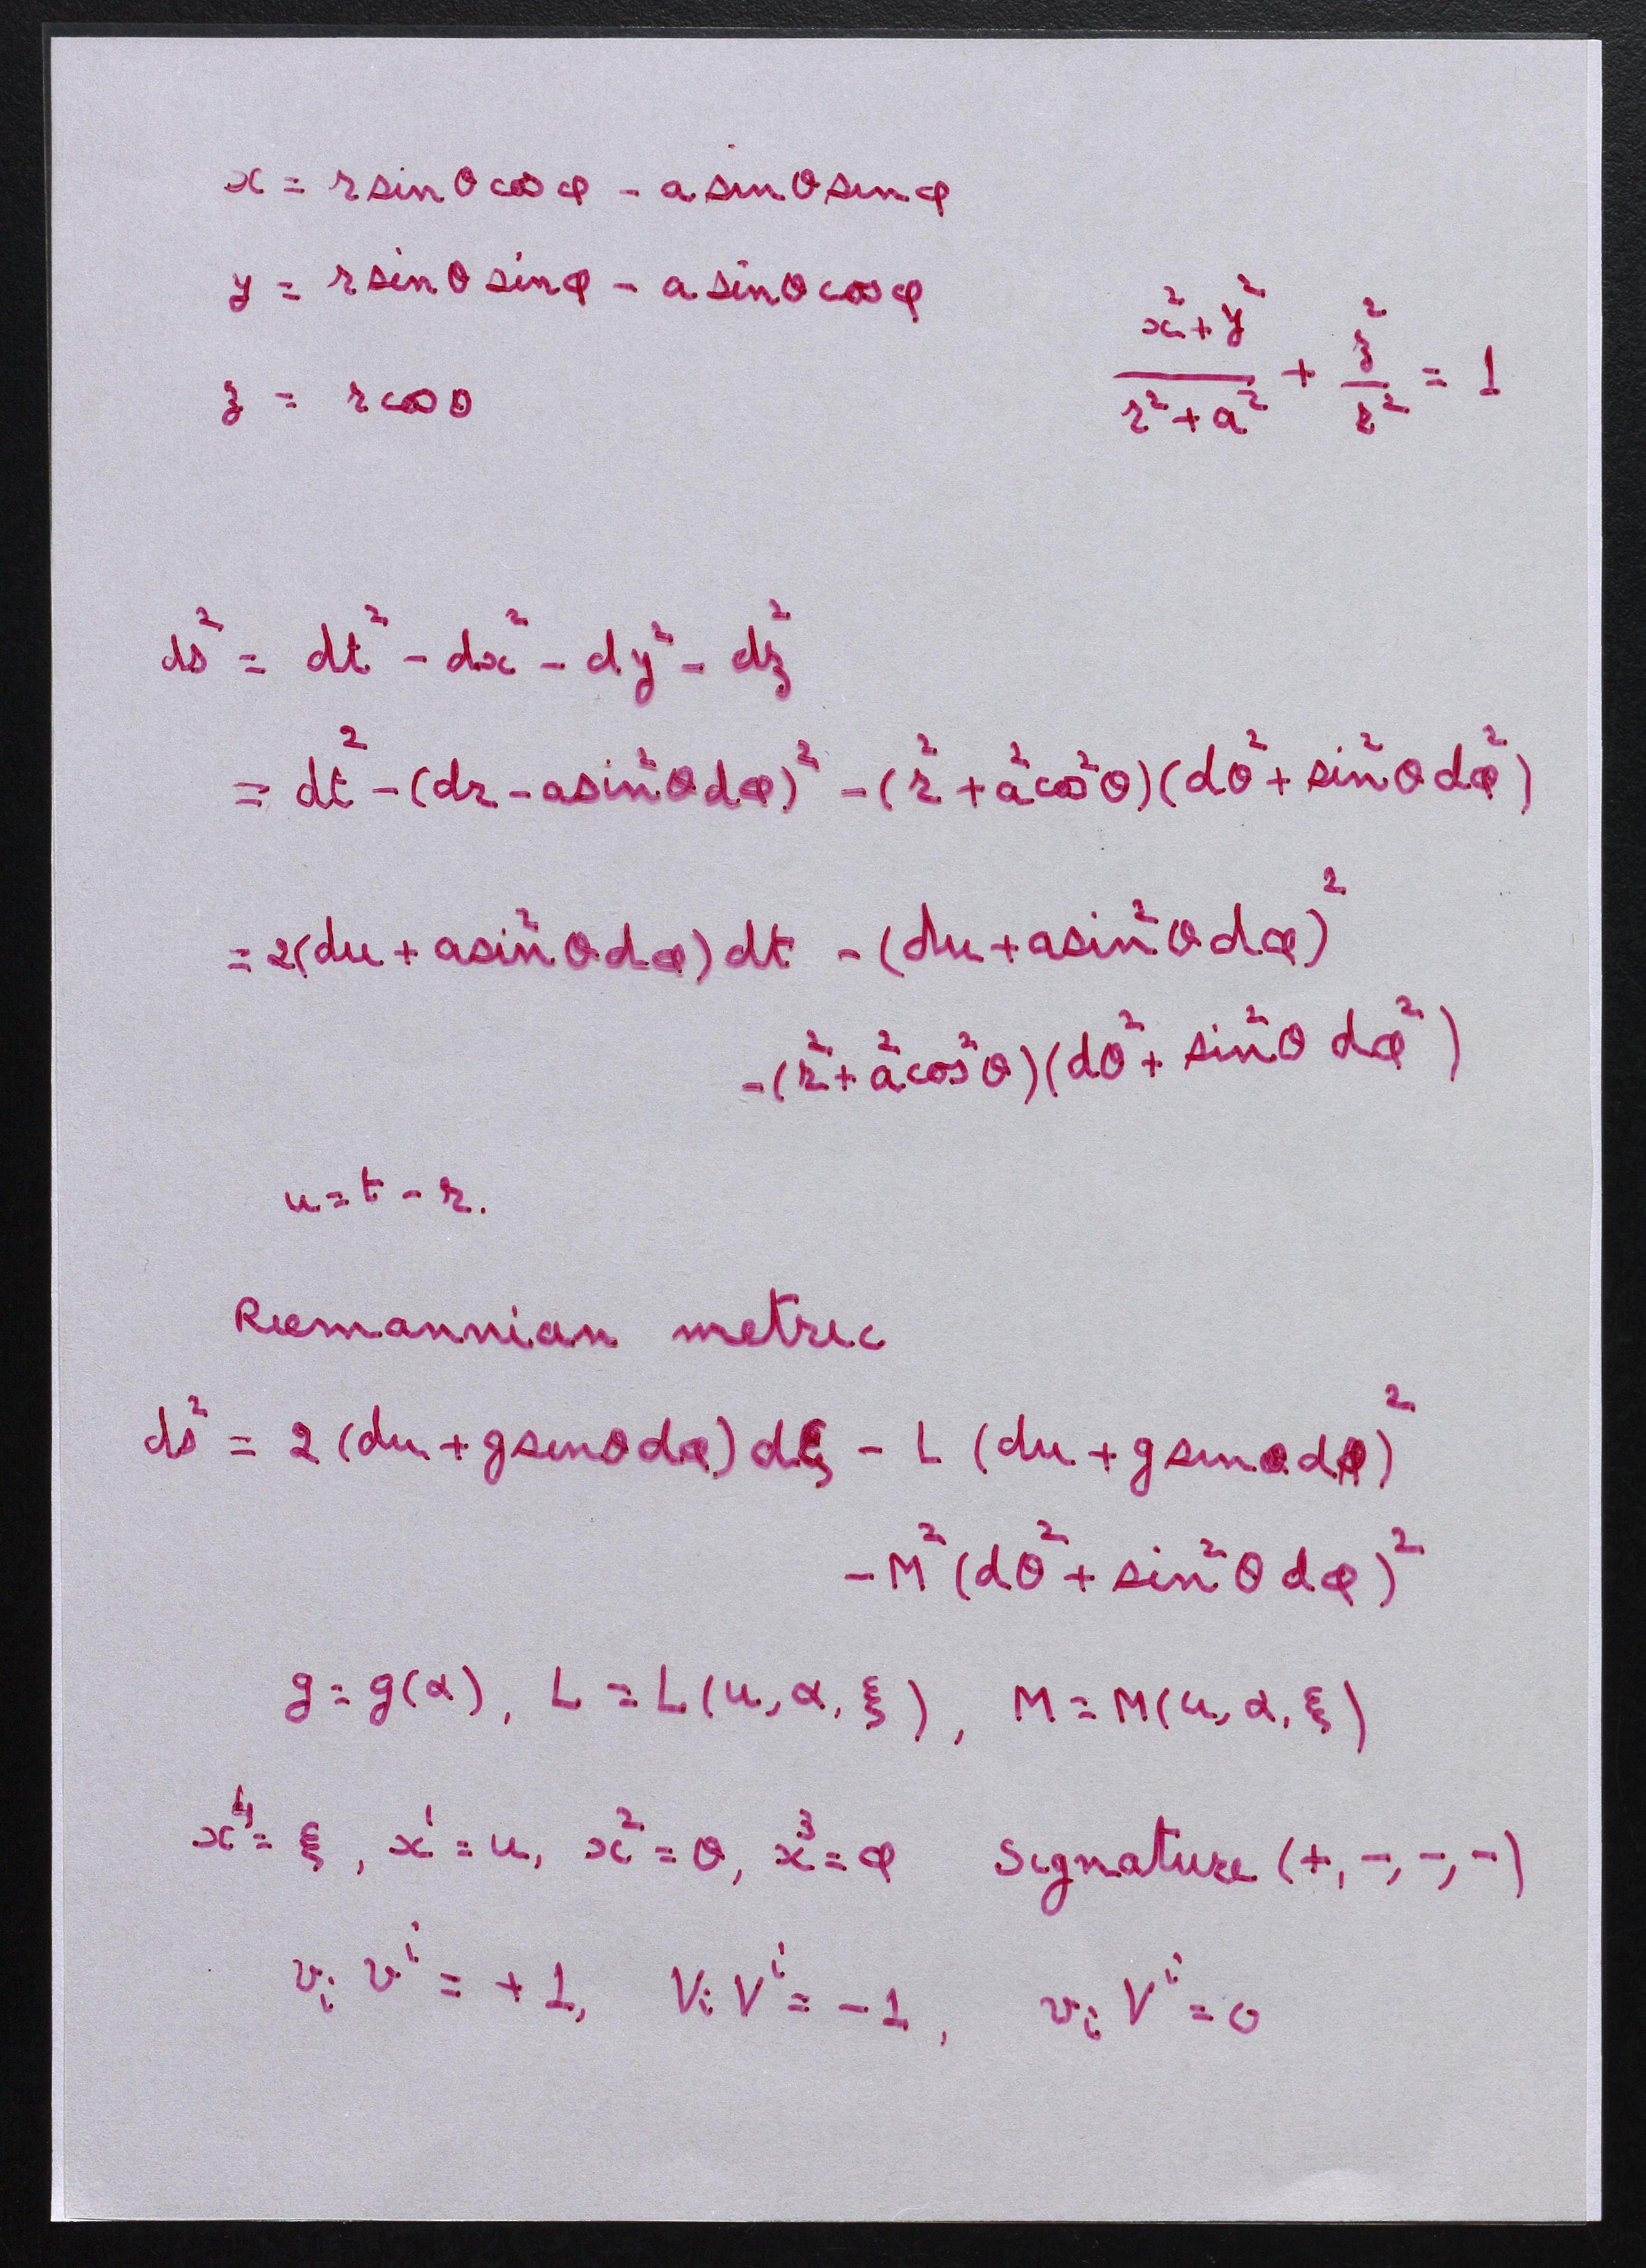 x = r sin θ cos φ - a sin θ sin φ
y = r sin θ sin φ - a sin θ cos φ
z = r cos θ
(x² + y²)/(r² + a²) + z²/r² = 1
ds² = dt² - dx² - dy² - dz²
= dt² - (dr - a sin²θ dφ)² - (r² + a² cos²θ)(dθ² + sin²θ dφ²)
= 2(du + a sin²θ dφ) dt - (du + a sin²θ dφ)²
- (r² + a² cos²θ)(dθ² + sin²θ dφ²)
u = t - r.
Riemannian metric
ds² = 2 (du + g sin θ dφ) dξ - L (du + g sin θ dφ)²
- M² (dθ² + sin²θ dφ)²
g = g(α), L = L(u, α, ξ), M = M(u, α, ξ)
x⁴ = ξ, x¹ = u, x² = θ, x³ = φ Signature (+, -, -, -)
vᵢ vⁱ = +1, Vᵢ Vⁱ = -1, vᵢ Vⁱ = 0